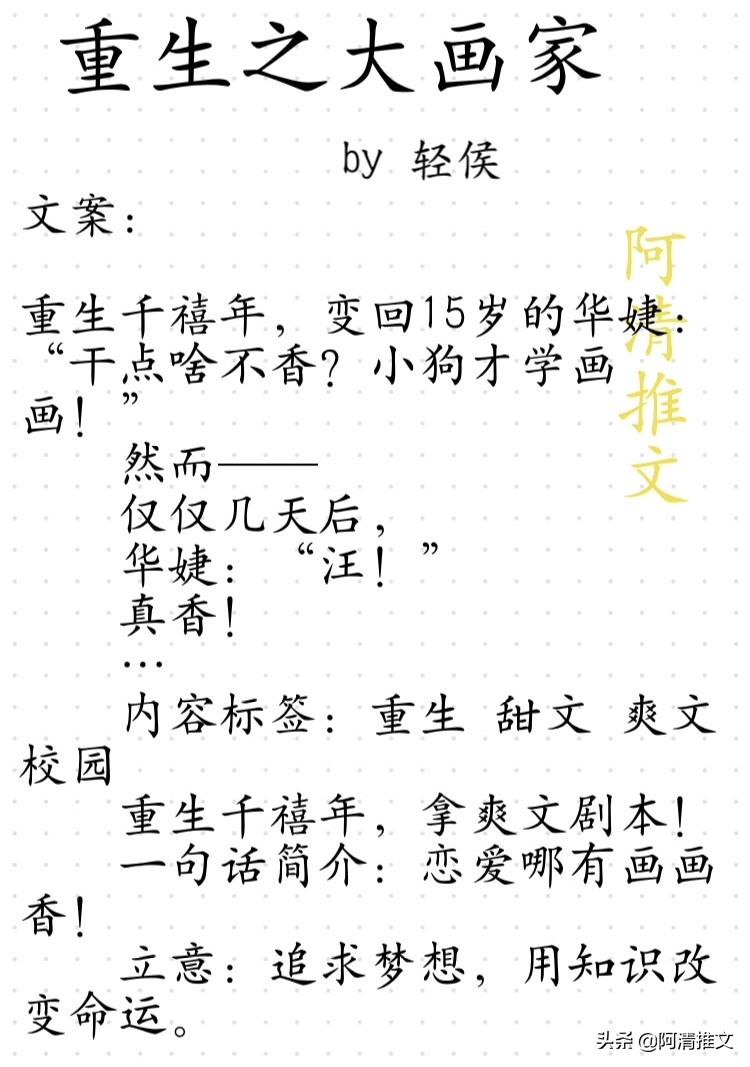 重生之大画家
by 轻侯
文案：
重生千禧年，变回15岁的华婕：
“干点啥不香？小狗才学画
画！”
然而——
仅仅几天后，
华婕：“汪！”
真香！
…
内容标签：重生 甜文 爽文
校园
重生千禧年，拿爽文剧本！
一句话简介：恋爱哪有画画
香！
立意：追求梦想，用知识改
变命运。
阿清推文
头条 @阿清推文